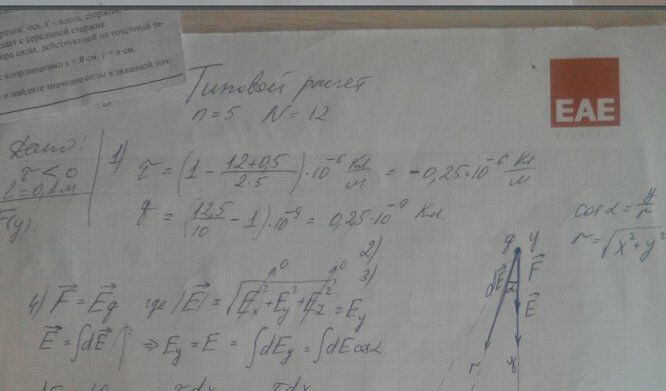 ось X – вдоль стержня, с
дает с серединой стержня.
ра силы, действующей на точечный за-
координатами x = 0 см, y = n см.
и найдите значение силы в заданной точ-
Типовой расчет
n = 5 N = 12
EAE
Дано:
τ < 0
l = 0,1 м
F(y)
1) τ = (1 - (12+0,5)/(2·5))·10⁻⁶ Кл/м = -0,25·10⁻⁶ Кл/м
q = (12,5/10 - 1)·10⁻⁹ = 0,25·10⁻⁹ Кл
cos α = y/r
r = √(x² + y²)
2)
3)
4) F⃗ = E⃗q где |E⃗| = √(Ex² + Ey² + Ez²) = Ey
E⃗ = ∫dE⃗ ⇒ Ey = E = ∫dEy = ∫dE cos α
q y
dE⃗ α F⃗
E⃗
r x